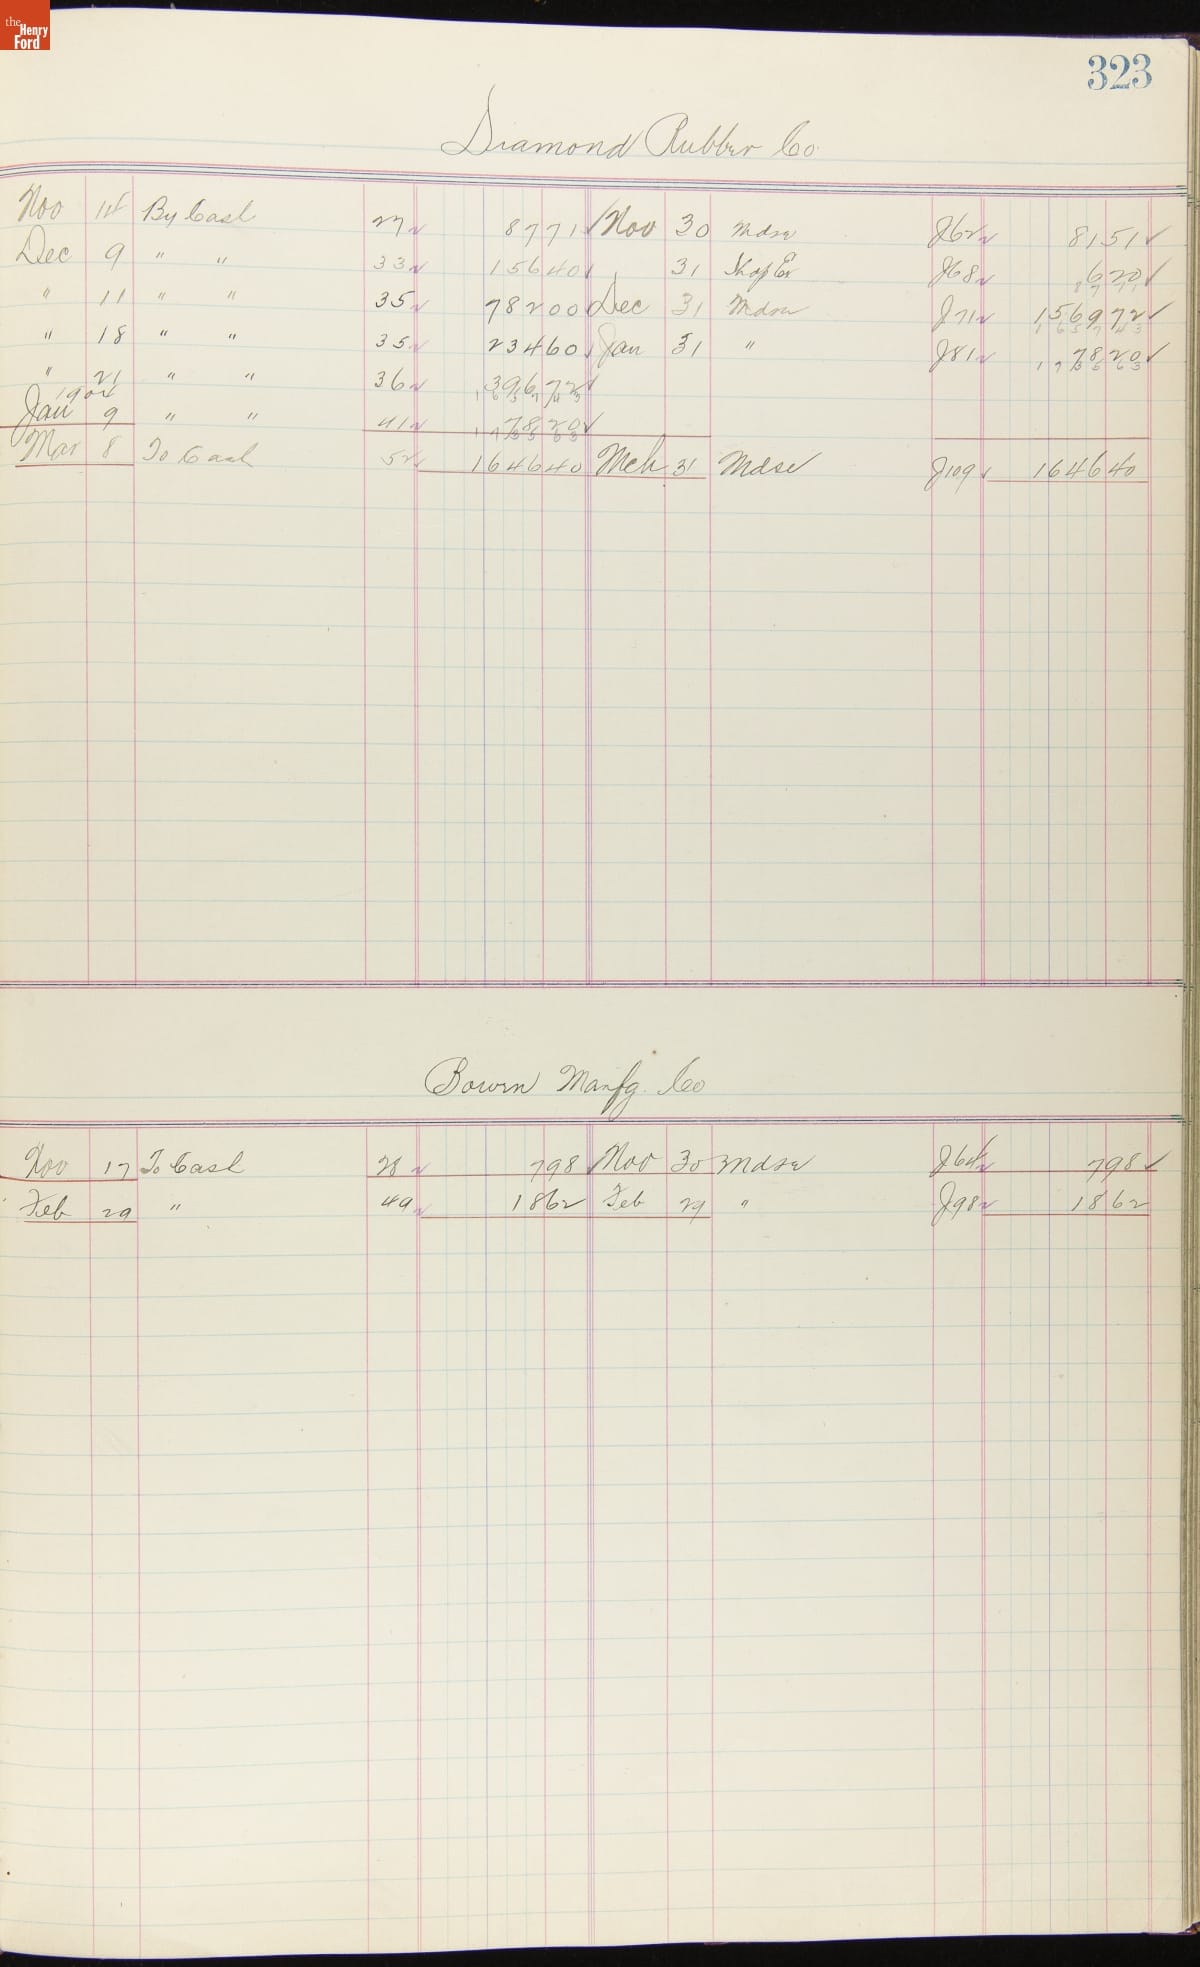 the Henry Ford
323
Diamond Rubber Co
Nov 14 By Cash 27 87 71 Nov 30 Mdse J62 81 51
Dec 9 " " 33 156 40 31 Shop Ex J68 6 20
87 71
" 11 " " 35 782 00 Dec 31 Mdse J71 1569 72
1657 43
" 18 " " 35 234 60 Jan 31 " J81 78 20
1735 63
" 21 " " 36 396 72
1657 43
1904
Jan 9 " " 41 78 20
1735 63
Mar 8 To Cash 52 1646 40 Mch 31 Mdse J109 1646 40
Bowen Manfg. Co
Nov 17 To Cash 28 7 98 Nov 30 Mdse J64 7 98
Feb 29 " 49 18 62 Feb 29 " J98 18 62